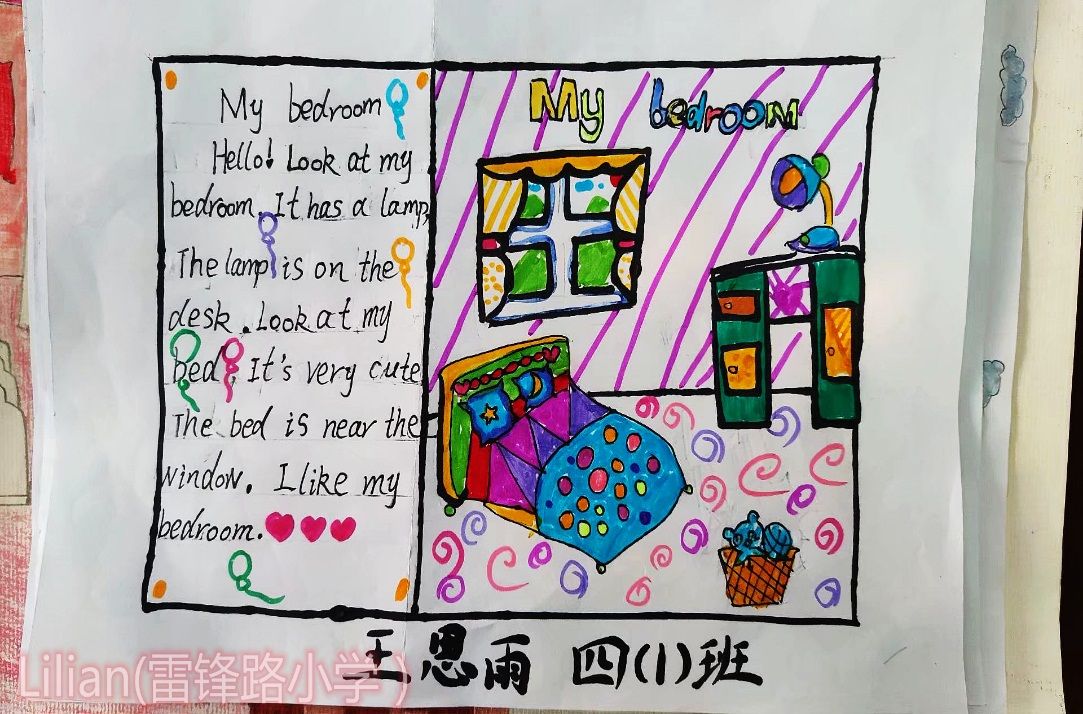 My bedroom
Hello! Look at my
bedroom. It has a lamp.
The lamp is on the
desk. Look at my
bed. It's very cute
The bed is near the
window. I like my
bedroom.
My bedroom
王思雨 四(1)班
Lilian(雷锋路小学)